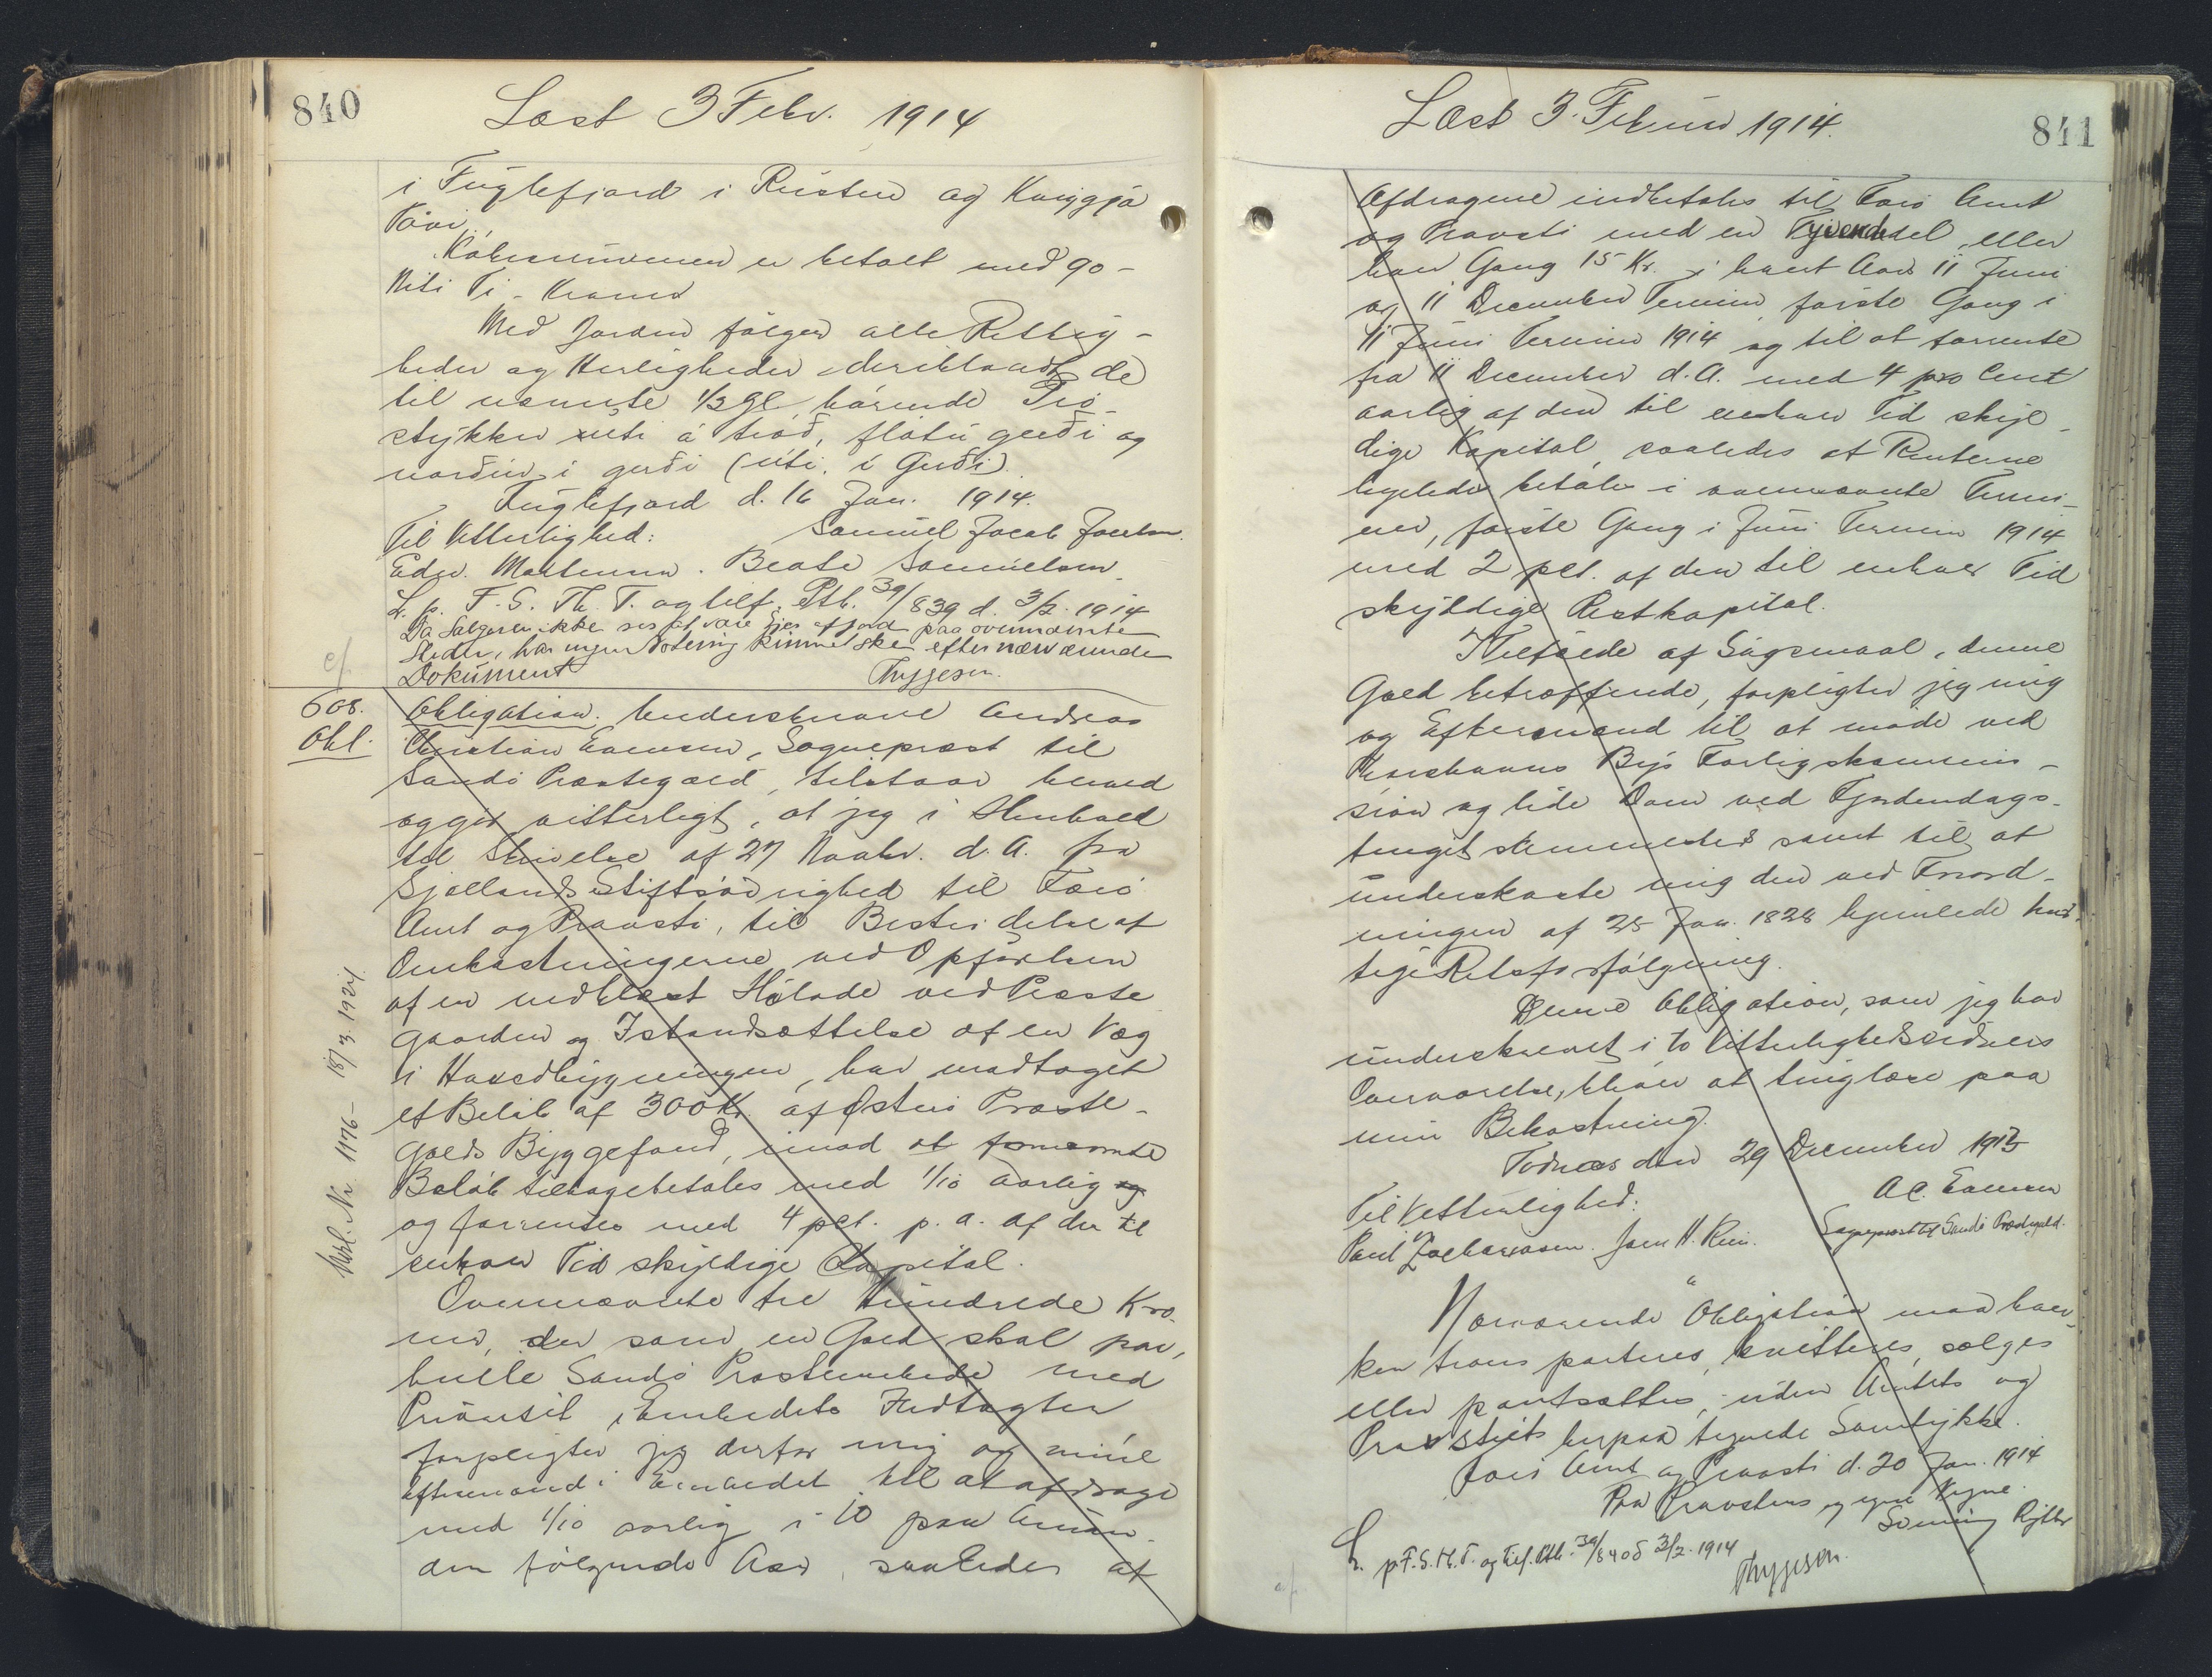 840
Læst 3 Febr. 1914
i Fuglefjord i Rustin og Kviggjá
Tövi.
Købesummen er betalt med 90 -
Niti Ti - Kroner
Med Jorden følger alle Rettig-
heder og Herligheder deriblandt de
til nævnte 1/2 Gl. hørende Trö-
stykker úti á tröð, flötu gerði og
norðuri i gerði (úti i Gerði).
Fuglefjord d. 16 Jan. 1914.
Til Vitterlighed: Samuel Jacob Jacobsen.
Edw. Mortensen. Beate Samuelsen
L. p. F. S. Th. T. og tilf. Ptb. 39/839 d. 3/2. 1914
Da Sælgeren ikke ses at være Ejer af Jord paa ovennævnte
Steder, har ingen Notering kunnet ske efter nærværende
Dokument Thygesen.
cf.
608.
Obl.
Obligation. Underskrevne Andreas
Christian Evensen, Sognepræst til
Sandø Præstegæld, tilstaar herved
og gør vitterligt, at jeg i Henhold
til Skrivelse af 27 Novbr. d. A. fra
Sjællands Stiftsøvrighed til Færø
Amt og Provsti, til Bestridelse af
Omkostningerne ved Opførelsen
af en nedblæst Hølade ved Præste
gaarden og Istandsættelse af en Væg
i Hovedbygningen, har modtaget
et Beløb af 300 Kr. af Østerø Præste-
gælds Byggefond, imod at fornævnte
Beløb tilbagebetales med 1/10 aarlig og
og forrentes med 4 pct. p. a. af den til
enhver Tid skyldige Kapital.
Ovennævnte tre Hundrede Kro-
ner, der som en Gæld skal paa-
hvile Sandø Præsteembede med
Prioritet i Embedets Indtægter
forpligter jeg derfor mig og mine
Eftermænd i Embedet til at afdrage
med 1/10 aarlig i 10 paa hinan-
den følgende Aar, saaledes at
Udsl. Nr 1176 - 18/3 1924
Læst 3. Februar 1914.
841
Afdragene indbetales til Færø Amt
og Provsti med en Tyvendedel eller
hver Gang 15 Kr. i hvert Aars 11 Juni
og 11 December Termin første Gang i
11 Juni Termin 1914 og til at forrente
fra 11 December d. A. med 4 pro Cent
aarlig af den til enhver Tid skyl-
dige Kapital, saaledes at Renterne
ligeledes betales i ovennævnte Termi-
ner, første Gang i Juni Termin 1914
med 2 pct. af den til enhver Tid
skyldige Restkapital.
I Tilfælde af Søgsmaal, denne
Gæld betræffende, forpligter jeg mig
og Eftermænd til at møde ved
Thorshavns Bys Forligskommis-
sion og lide Dom ved Fjordendags-
tinget sammesteds samt til at
underkaste mig den ved Forord-
ningen af 25 Jan. 1828 hjemlede hur-
tige Retsforfølgning.
Denne Obligation, som jeg har
underskrevet i to Vitterlighedsvidners
Overværelse, bliver at tinglæse paa
min Bekostning.
Todnæs den 29 December 1913
A C. Evensen
Til Vitterlighed: Sognepræst til Sandø Præstegæld.
Paul Zachariasen. Joen H. Rein.
Nærværende Obligation maa hver-
ken transporteres, kvitteres, sælges
eller pantsættes, uden Amtets og
Provstiets herpaa tegnede Samtykke.
Færø Amt og Provsti d. 20 Jan. 1914
Paa Provstens og egne Vegne.
Svenning Rytter
L. p. F. S. Th. T. og tilf. Ptb. 39/840 d 3/2. 1914
Thygesen.
cf.